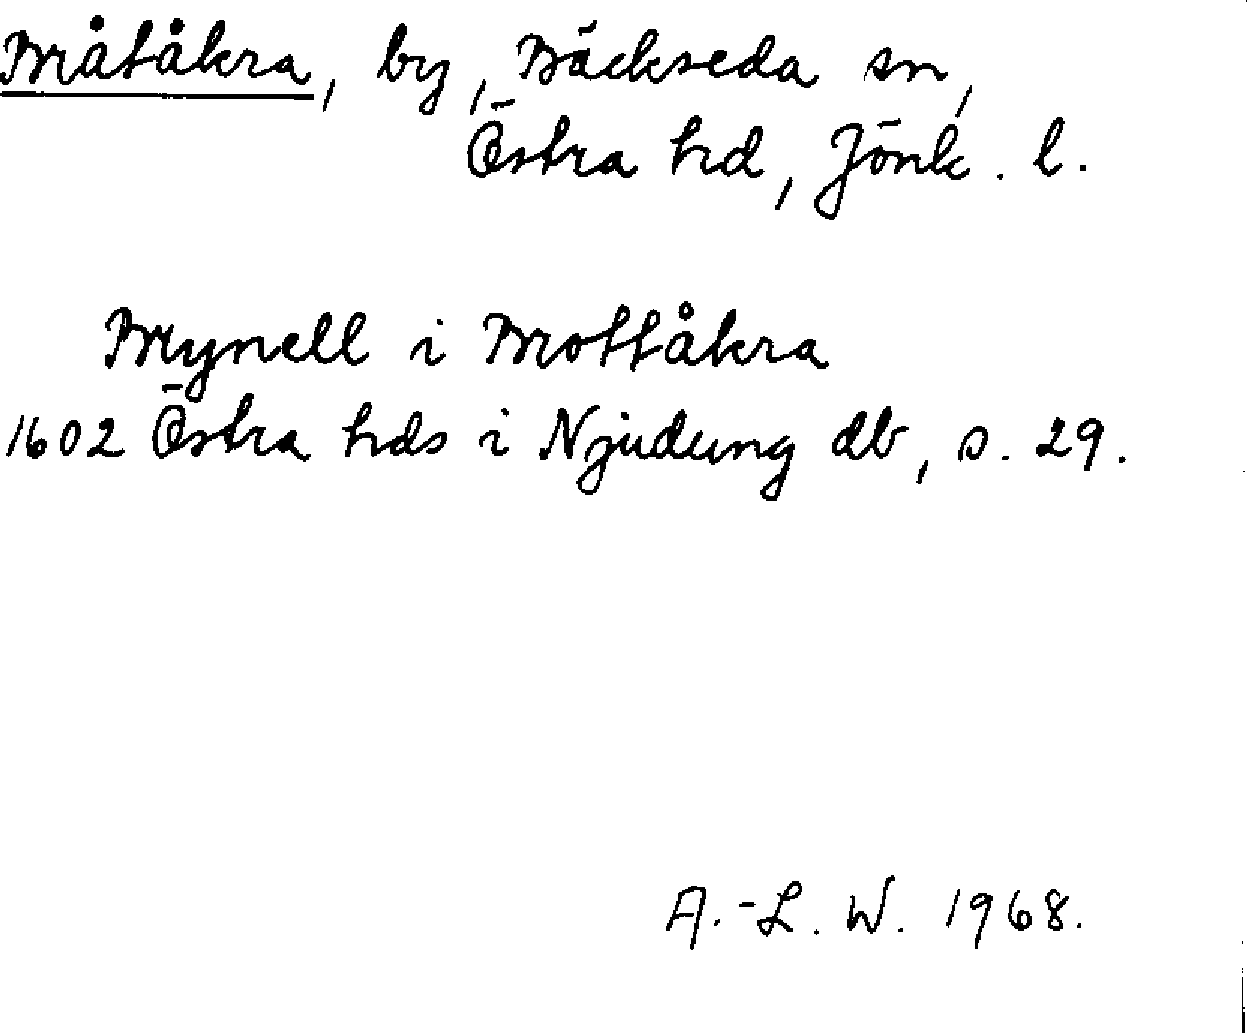 Bråtåkra, by, Bäckseda sn,
Östra hd, Jönk. l.
Brynell i Brottåkra
1602 Östra hds i Njudung db, s. 29.
A.-L. W. 1968.